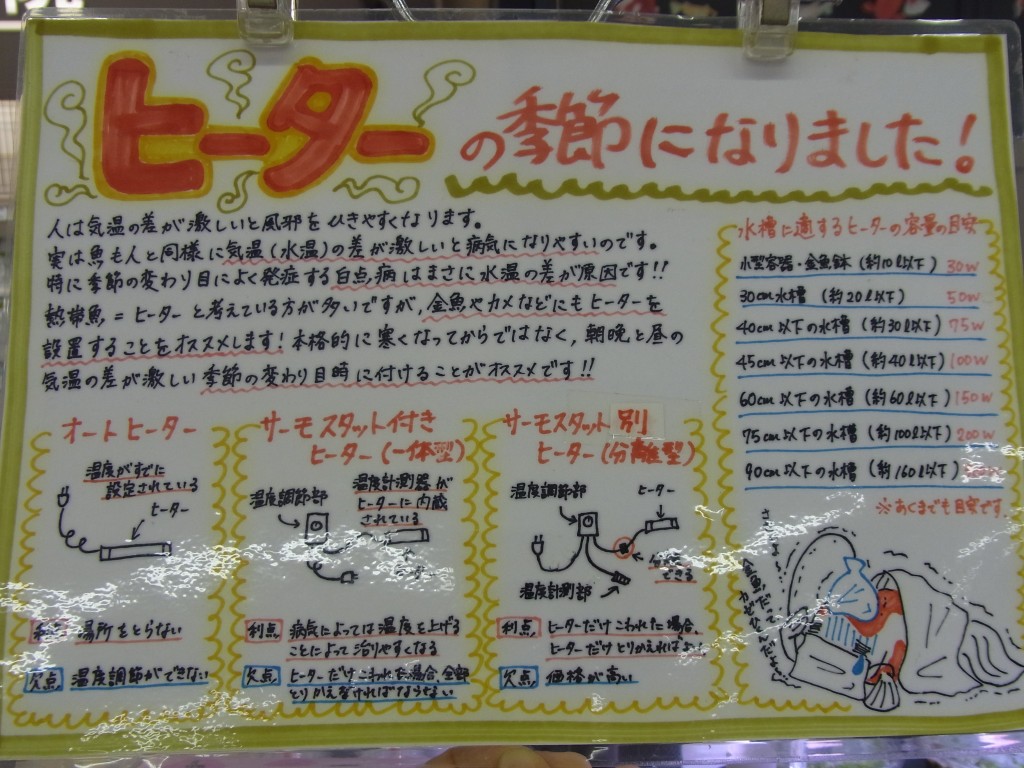 ヒーターの季節になりました!
人は気温の差が激しいと風邪をひきやすくなります。
実は魚も人と同様に気温(水温)の差が激しいと病気になりやすいのです。
特に季節の変わり目によく発症する白点病はまさに水温の差が原因です!!
熱帯魚=ヒーターと考えている方が多いですが、金魚やカメなどにもヒーターを
設置することをオススメします!本格的に寒くなってからではなく、朝晩と昼の
気温の差が激しい季節の変わり目時に付けることがオススメです!!
水槽に適するヒーターの容量の目安
小型容器・金魚鉢(約10ℓ以下) 30W
30cm水槽 (約20ℓ以下) 50W
40cm以下の水槽 (約30ℓ以下) 75W
45cm以下の水槽 (約40ℓ以下) 100W
60cm以下の水槽 (約60ℓ以下) 150W
75cm以下の水槽 (約100ℓ以下) 200W
90cm以下の水槽 (約160ℓ以下)
※あくまでも目安です。
オートヒーター
温度がすでに
設定されている
ヒーター
利点 場所をとらない
欠点 温度調節ができない
サーモスタット付き
ヒーター(一体型)
温度調節部
温度計測器が
ヒーターに内蔵
されている
ヒーター
利点 病気によっては温度を上げる
ことによって治りやすくなる
欠点 ヒーターだけこわれた場合、全部
とりかえなければならない
サーモスタット別
ヒーター(分離型)
温度調節部
ヒーター
できる
温度計測部
利点 ヒーターだけこわれた場合、
ヒーターだけとりかえればよい!
欠点 価格が高い
金魚だって
カゼひくんだよ